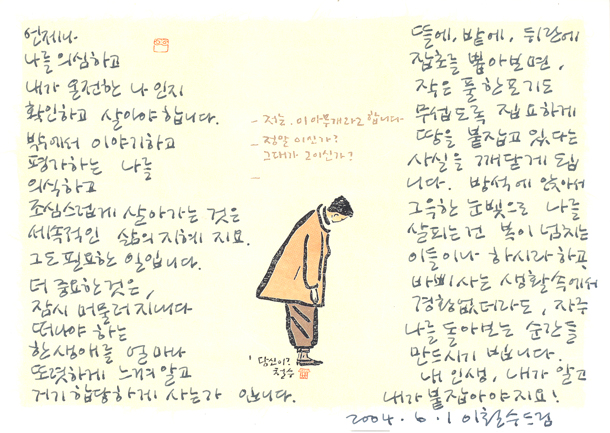 언제나
나를 의심하고
내가 온전한 나 인지
확인하고 살아야 합니다.
밖에서 이야기하고
평가하는 나를
의식하고
조심스럽게 살아가는 것은
세속적인 삶의 지혜 지요.
그도 필요한 일입니다.
더 중요한 것은,
잠시 머물러 지내다
떠나야 하는
한 생애를 얼마나
또렷하게 느껴 알고
거기 합당하게 사는가 입니다.
- 저는, 이아무개라고 합니다-
- 정말 이신가?
그대가 그이신가?
-
당신이?
철수
뜰에, 밭에, 뒤란에
잡초를 뽑아보면,
작은 풀 한포기도
무섭도록 집요하게
땅을 붙잡고 있다는
사실을 깨닫게 됩
니다. 방석에 앉아서
그윽한 눈빛으로 나를
살피는건 복이 넘치는
이들이나 하시라 하고,
바삐 사는 생활속에서
경황없더라도, 자주
나를 돌아보는 순간들
만드시기 빕니다.
내 인생, 내가 알고
내가 붙잡아야지요!
2004. 6. 1 이철수드림